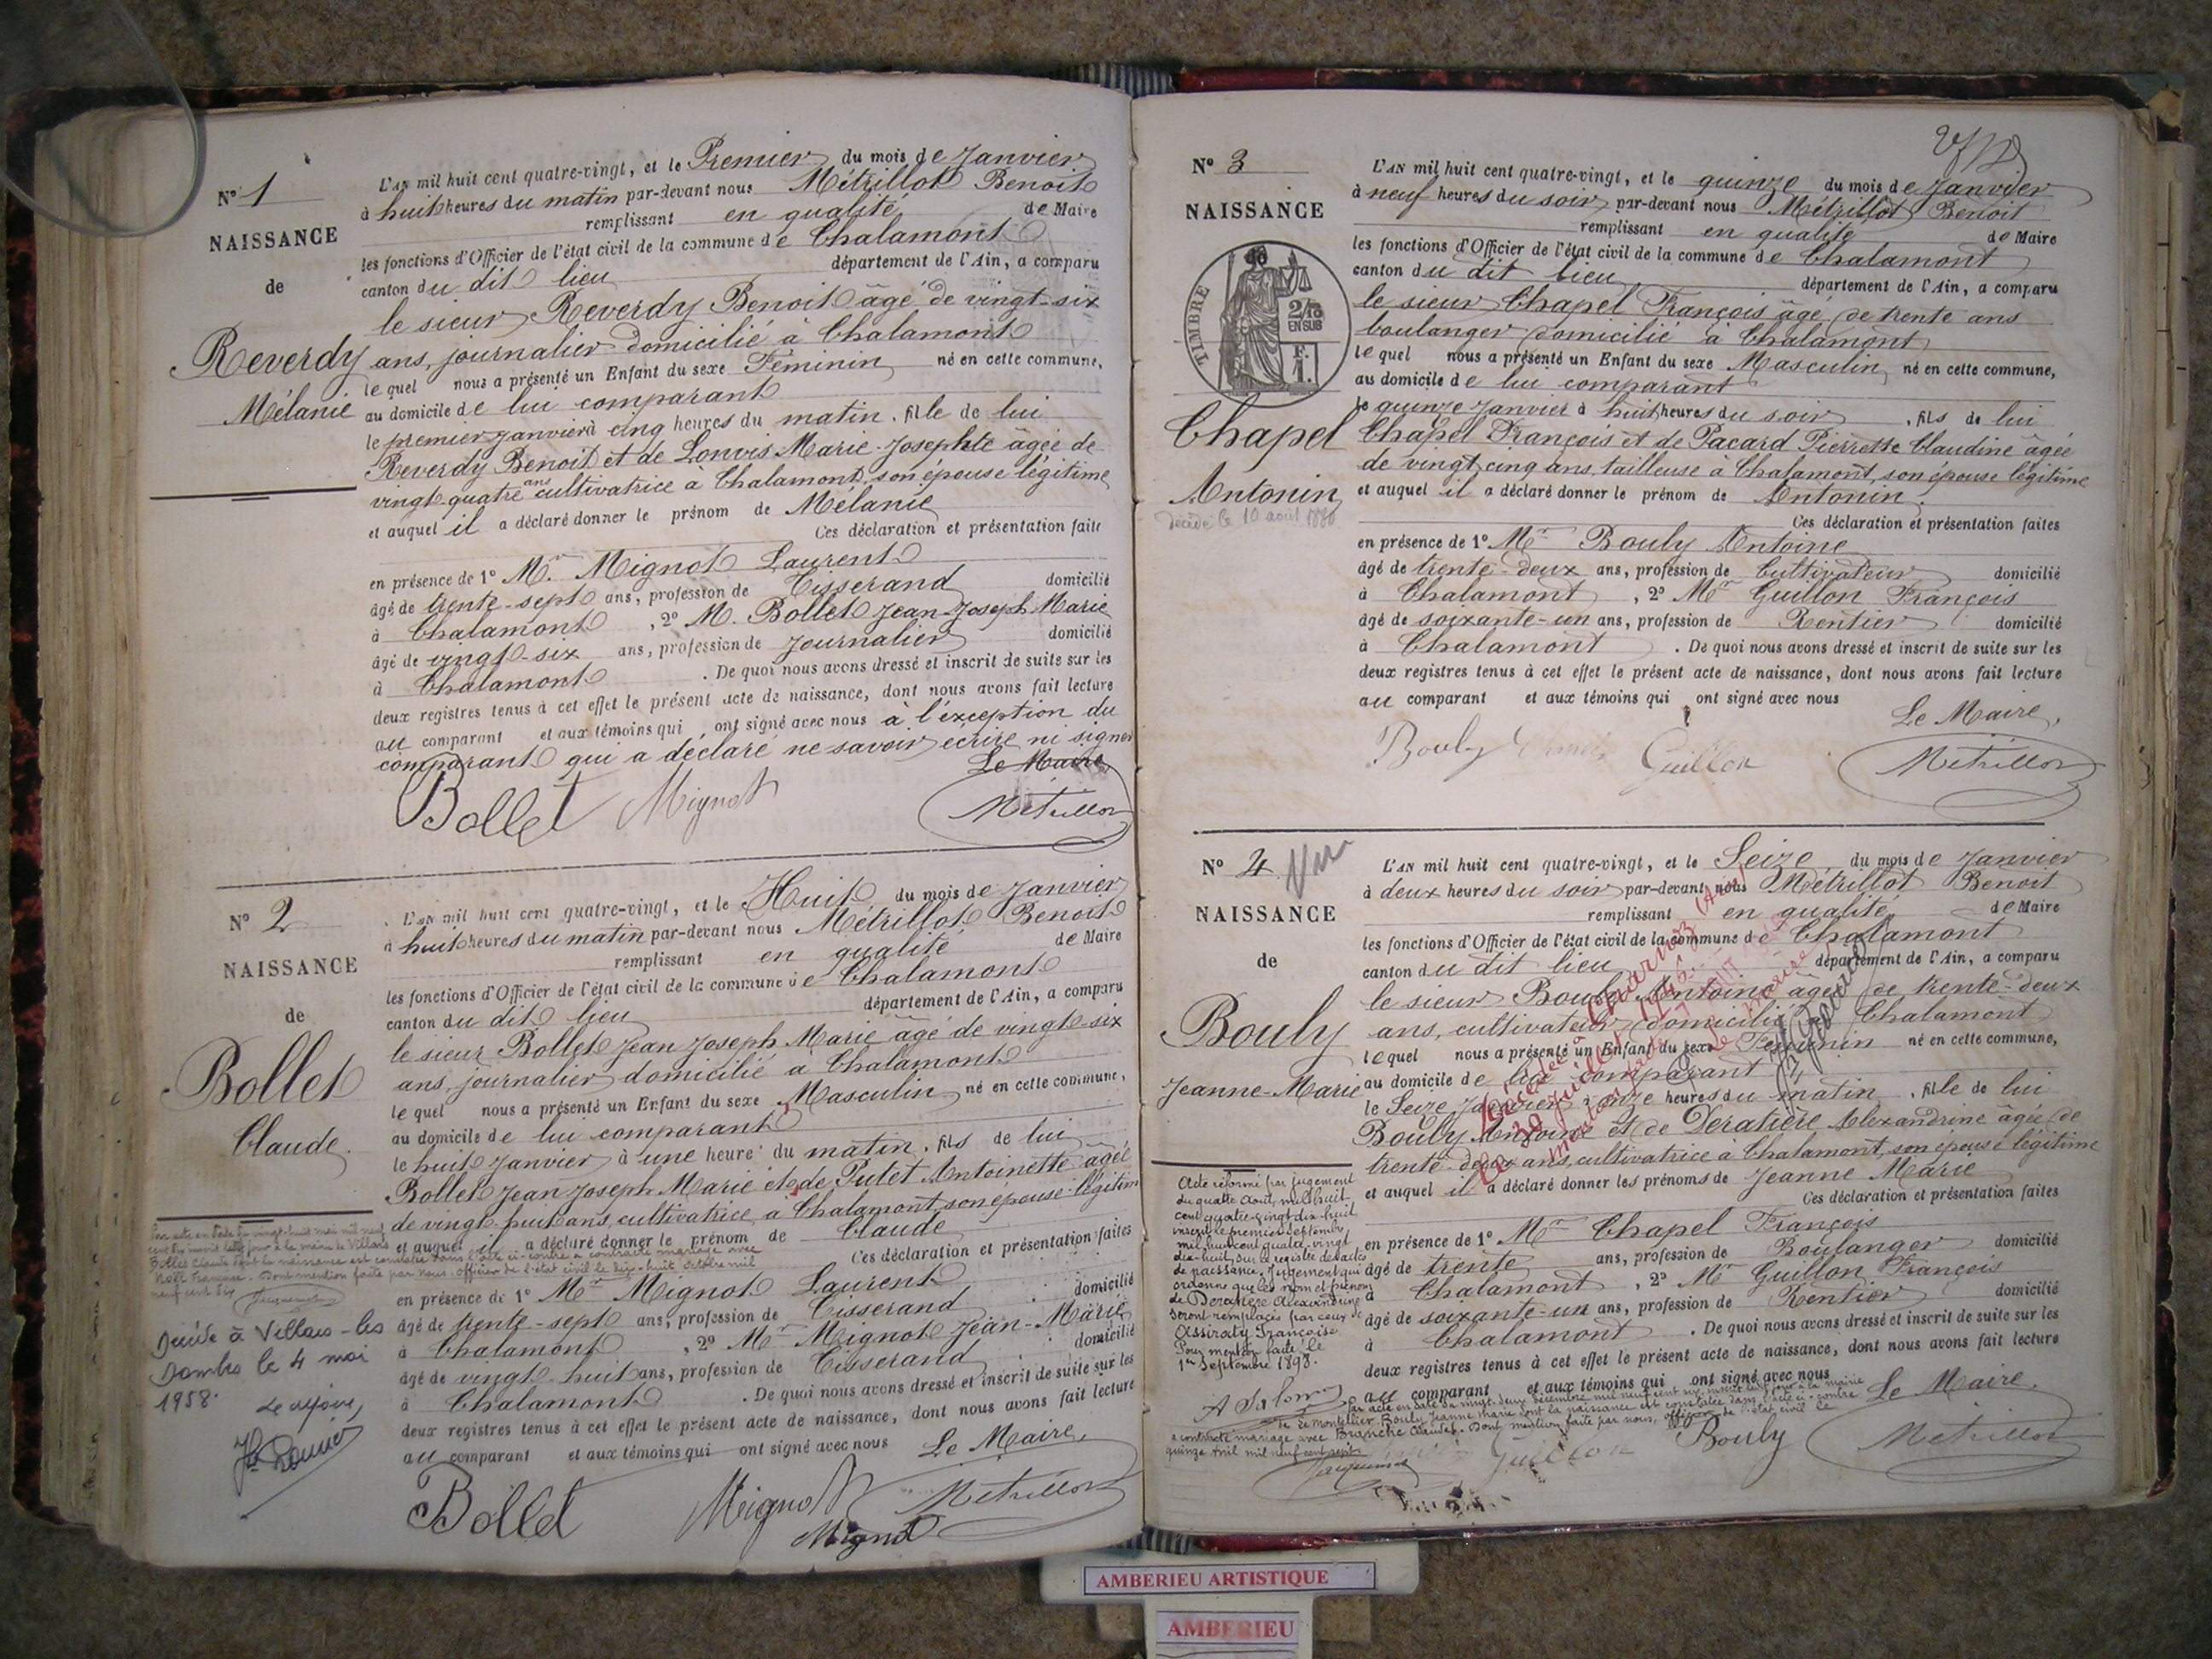 N° 1
NAISSANCE
de
Reverdy
Mélanie
L'AN mil huit cent quatre-vingt, et le Premier du mois de Janvier
à huit heures du matin par-devant nous Métrillot Benoit
remplissant en qualité de Maire
les fonctions d'Officier de l'état civil de la commune de Chalamont
canton du dit lieu département de l'Ain, a comparu
le sieur Reverdy Benoit âgé de vingt-six
ans, journalier domicilié à Chalamont
lequel nous a présenté un Enfant du sexe Féminin né en cette commune,
au domicile de lui comparant
le premier janvier à cinq heures du matin, fille de lui
Reverdy Benoit et de Lonvis Marie-Josephte âgée de
vingt-quatre ans cultivatrice à Chalamont, son épouse légitime
et auquel il a déclaré donner le prénom de Mélanie
Ces déclaration et présentation faite
en présence de 1° Mr. Mignot Laurent
âgé de trente-sept ans, profession de Tisserand domicilié
à Chalamont, 2° M. Bollet Jean-Joseph Marie
âgé de vingt-six ans, profession de Journalier domicilié
à Chalamont. De quoi nous avons dressé et inscrit de suite sur les
deux registres tenus à cet effet le présent acte de naissance, dont nous avons fait lecture
au comparant et aux témoins qui ont signé avec nous à l'exception du
comparant qui a déclaré ne savoir écrire ni signer
Le Maire
Bollet Mignot Métrillot
N° 2
NAISSANCE
de
Bollet
Claude.
L'AN mil huit cent quatre-vingt, et le Huit du mois de Janvier
à huit heures du matin par-devant nous Métrillot Benoit
remplissant en qualité de Maire
les fonctions d'Officier de l'état civil de la commune de Chalamont
canton du dit lieu département de l'Ain, a comparu
le sieur Bollet Jean Joseph Marie âgé de vingt-six
ans, journalier domicilié à Chalamont
lequel nous a présenté un Enfant du sexe Masculin né en cette commune,
au domicile de lui comparant
le huit Janvier à une heure du matin, fils de lui
Bollet Jean-Joseph Marie et de Putet Antoinette âgée
de vingt-huit ans, cultivatrice à Chalamont, son épouse légitime
et auquel il a déclaré donner le prénom de Claude
Ces déclaration et présentation faites
en présence de 1° Mr Mignot Laurent domicilié
âgé de trente-sept ans, profession de Tisserand
à Chalamont, 2° Mr Mignot Jean-Marie
âgé de vingt-huit ans, profession de Tisserand domicilié
à Chalamont. De quoi nous avons dressé et inscrit de suite sur les
deux registres tenus à cet effet le présent acte de naissance, dont nous avons fait lecture
au comparant et aux témoins qui ont signé avec nous Le Maire,
Bollet Mignot Métrillot
Mignot
Par acte en date du vingt-huit mai mil neuf
cent dix à la mairie de Villars
Bollet Claude dont la naissance est constatée dans l'acte ci-contre a contracté mariage avec
Dont mention faite par nous officier de l'état civil le dix-huit Octobre mil
neuf cent dix
Décédé à Villars-les
Dombes le 4 mai
1958.
N° 3
NAISSANCE
TIMBRE
2/10
EN SUS
F.
Chapel
Antonin
Décédé le 10 août 1880
L'AN mil huit cent quatre-vingt, et le quinze du mois de Janvier
à neuf heures du soir par-devant nous Métrillot Benoit
remplissant en qualité de Maire
les fonctions d'Officier de l'état civil de la commune de Chalamont
canton du dit lieu département de l'Ain, a comparu
le sieur Chapel François âgé de trente ans
boulanger domicilié à Chalamont
lequel nous a présenté un Enfant du sexe Masculin, né en cette commune,
au domicile de lui comparant
le quinze Janvier à huit heures du soir, fils de lui
Chapel François et de Pacard Pierrette Claudine âgée
de vingt cinq ans, tailleuse à Chalamont, son épouse légitime
et auquel il a déclaré donner le prénom de Antonin.
Ces déclaration et présentation faites
en présence de 1° Mr Bouly Antoine
âgé de trente-deux ans, profession de Cultivateur domicilié
à Chalamont, 2° Mr Guillon François
âgé de soixante-un ans, profession de Rentier domicilié
à Chalamont. De quoi nous avons dressé et inscrit de suite sur les
deux registres tenus à cet effet le présent acte de naissance, dont nous avons fait lecture
au comparant et aux témoins qui ont signé avec nous
Le Maire,
Bouly Guillon Métrillot
N° 4
NAISSANCE
de
Bouly
Jeanne-Marie
L'AN mil huit cent quatre-vingt, et le Seize du mois de Janvier
à deux heures du soir par-devant nous Métrillot Benoit
remplissant en qualité de Maire
les fonctions d'Officier de l'état civil de la commune de Chalamont
canton du dit lieu département de l'Ain, a comparu
le sieur Bouly Antoine âgé de trente-deux
ans, cultivateur domicilié à Chalamont
lequel nous a présenté un Enfant du sexe Féminin né en cette commune,
au domicile de lui comparant
le Seize Janvier à onze heures du matin, fille de lui
Bouly Antoine et de Deratière Alexandrine âgée de
trente-deux ans, cultivatrice à Chalamont, son épouse légitime
et auquel il a déclaré donner les prénoms de Jeanne Marie
Ces déclaration et présentation faites
en présence de 1° Mr Chapel François
âgé de trente ans, profession de Boulanger domicilié
à Chalamont, 2° Mr Guillon François
âgé de soixante-un ans, profession de Rentier domicilié
à Chalamont. De quoi nous avons dressé et inscrit de suite sur les
deux registres tenus à cet effet le présent acte de naissance, dont nous avons fait lecture
au comparant et aux témoins qui ont signé avec nous
Le Maire.
Guillon Bouly Métrillot
Acte réformé par jugement
du quatre Août, mil huit
cent quatre-vingt-dix-huit
inscrit le premier Septembre
mil huit cent quatre-vingt
dix-huit, sur le registre des actes
de naissance. Jugement qui
ordonne que les nom et prénom
de Deratière Alexandrine
seront remplacés par ceux de
Assiraty Françoise
Pour mention faite le
1er Septembre 1898.
par acte en date du vingt-deux décembre mil neuf cent six, à la mairie
de Montellier Bouly Jeanne Marie dont la naissance est constatée dans l'acte ci-contre
a contracté mariage avec Branche Claude. Dont mention faite par nous, officier de l'état civil le
quinze Avril mil neuf cent sept.
Décédée à
30 juillet
AMBERIEU ARTISTIQUE
AMBERIEU